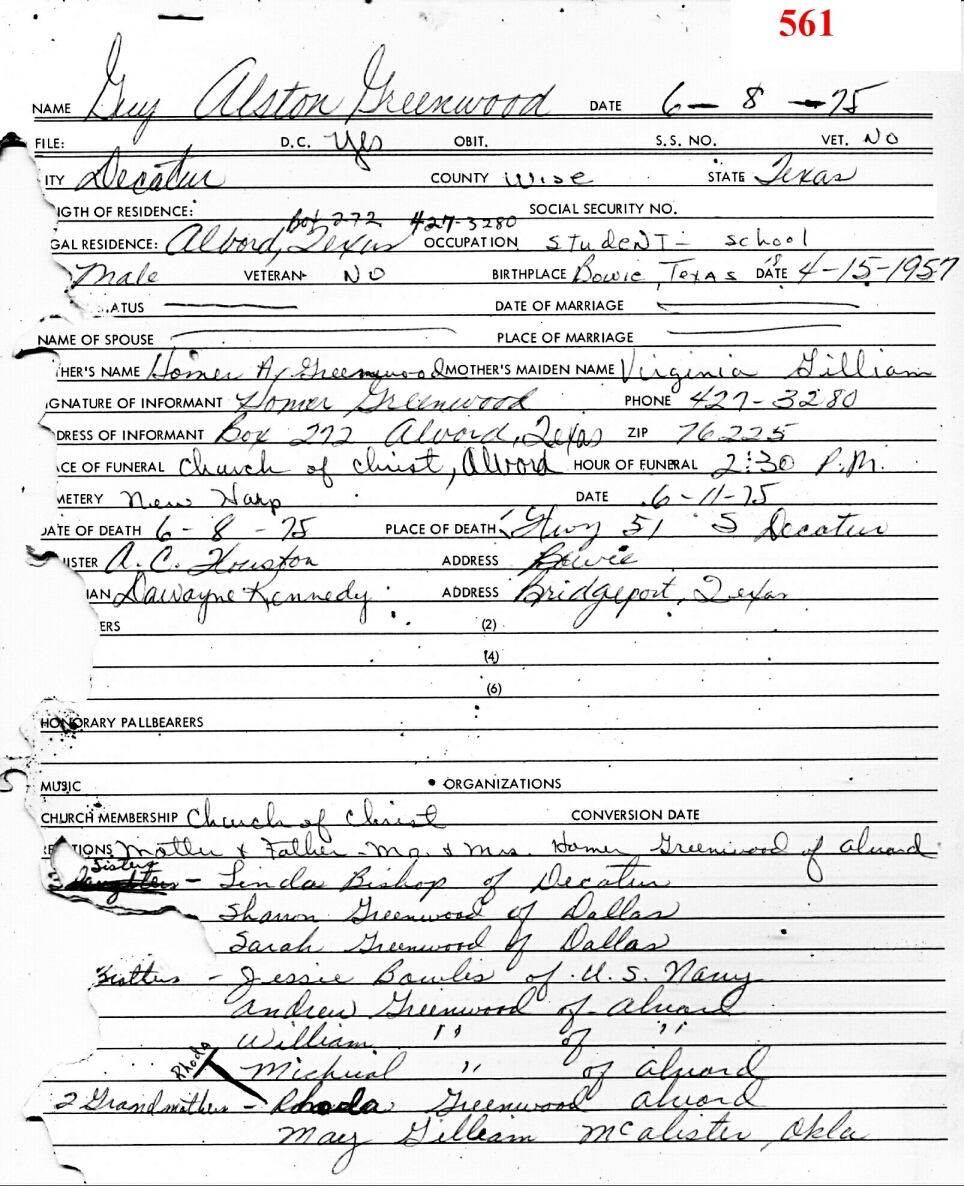 561
NAME Guy Alston Greenwood DATE 6-8-75
FILE: D.C. Yes OBIT. S.S. NO. VET. NO
ITY Decatur COUNTY Wise STATE Texas
NGTH OF RESIDENCE: SOCIAL SECURITY NO.
Box 272 427-3280
GAL RESIDENCE: Alvord, Texas OCCUPATION Student - School
Male VETERAN NO BIRTHPLACE Bowie, Texas 18 DATE 4-15-1957
ATUS DATE OF MARRIAGE
NAME OF SPOUSE PLACE OF MARRIAGE
HER'S NAME Homer A. Greenwood MOTHER'S MAIDEN NAME Virginia Gilliam
IGNATURE OF INFORMANT Homer Greenwood PHONE 427-3280
DRESS OF INFORMANT Box 272 Alvord, Texas ZIP 76225
ACE OF FUNERAL Church of Christ, Alvord HOUR OF FUNERAL 2:30 P.M.
METERY New Harp DATE 6-11-75
DATE OF DEATH 6-8-75 PLACE OF DEATH Hwy 51 S Decatur
ISTER A.C. Houston ADDRESS Bowie
IAN Dawayne Kennedy ADDRESS Bridgeport, Texas
ERS (2)
(4)
(6)
HONORARY PALLBEARERS
MUSIC ORGANIZATIONS
CHURCH MEMBERSHIP Church of Christ CONVERSION DATE
RELATIONS Mother & Father - Mr. & Mrs. Homer Greenwood of Alvord
Sisters
3 Daughters - Linda Bishop of Decatur
Sharon Greenwood of Dallas
Sarah Greenwood of Dallas
Brothers - Jessie Bowles of U.S. Navy
Andrew Greenwood of Alvord
William " of "
Michial " of Alvord
Rhoda
2 Grandmothers - Rhoda Greenwood Alvord
May Gilliam McAlister, Okla